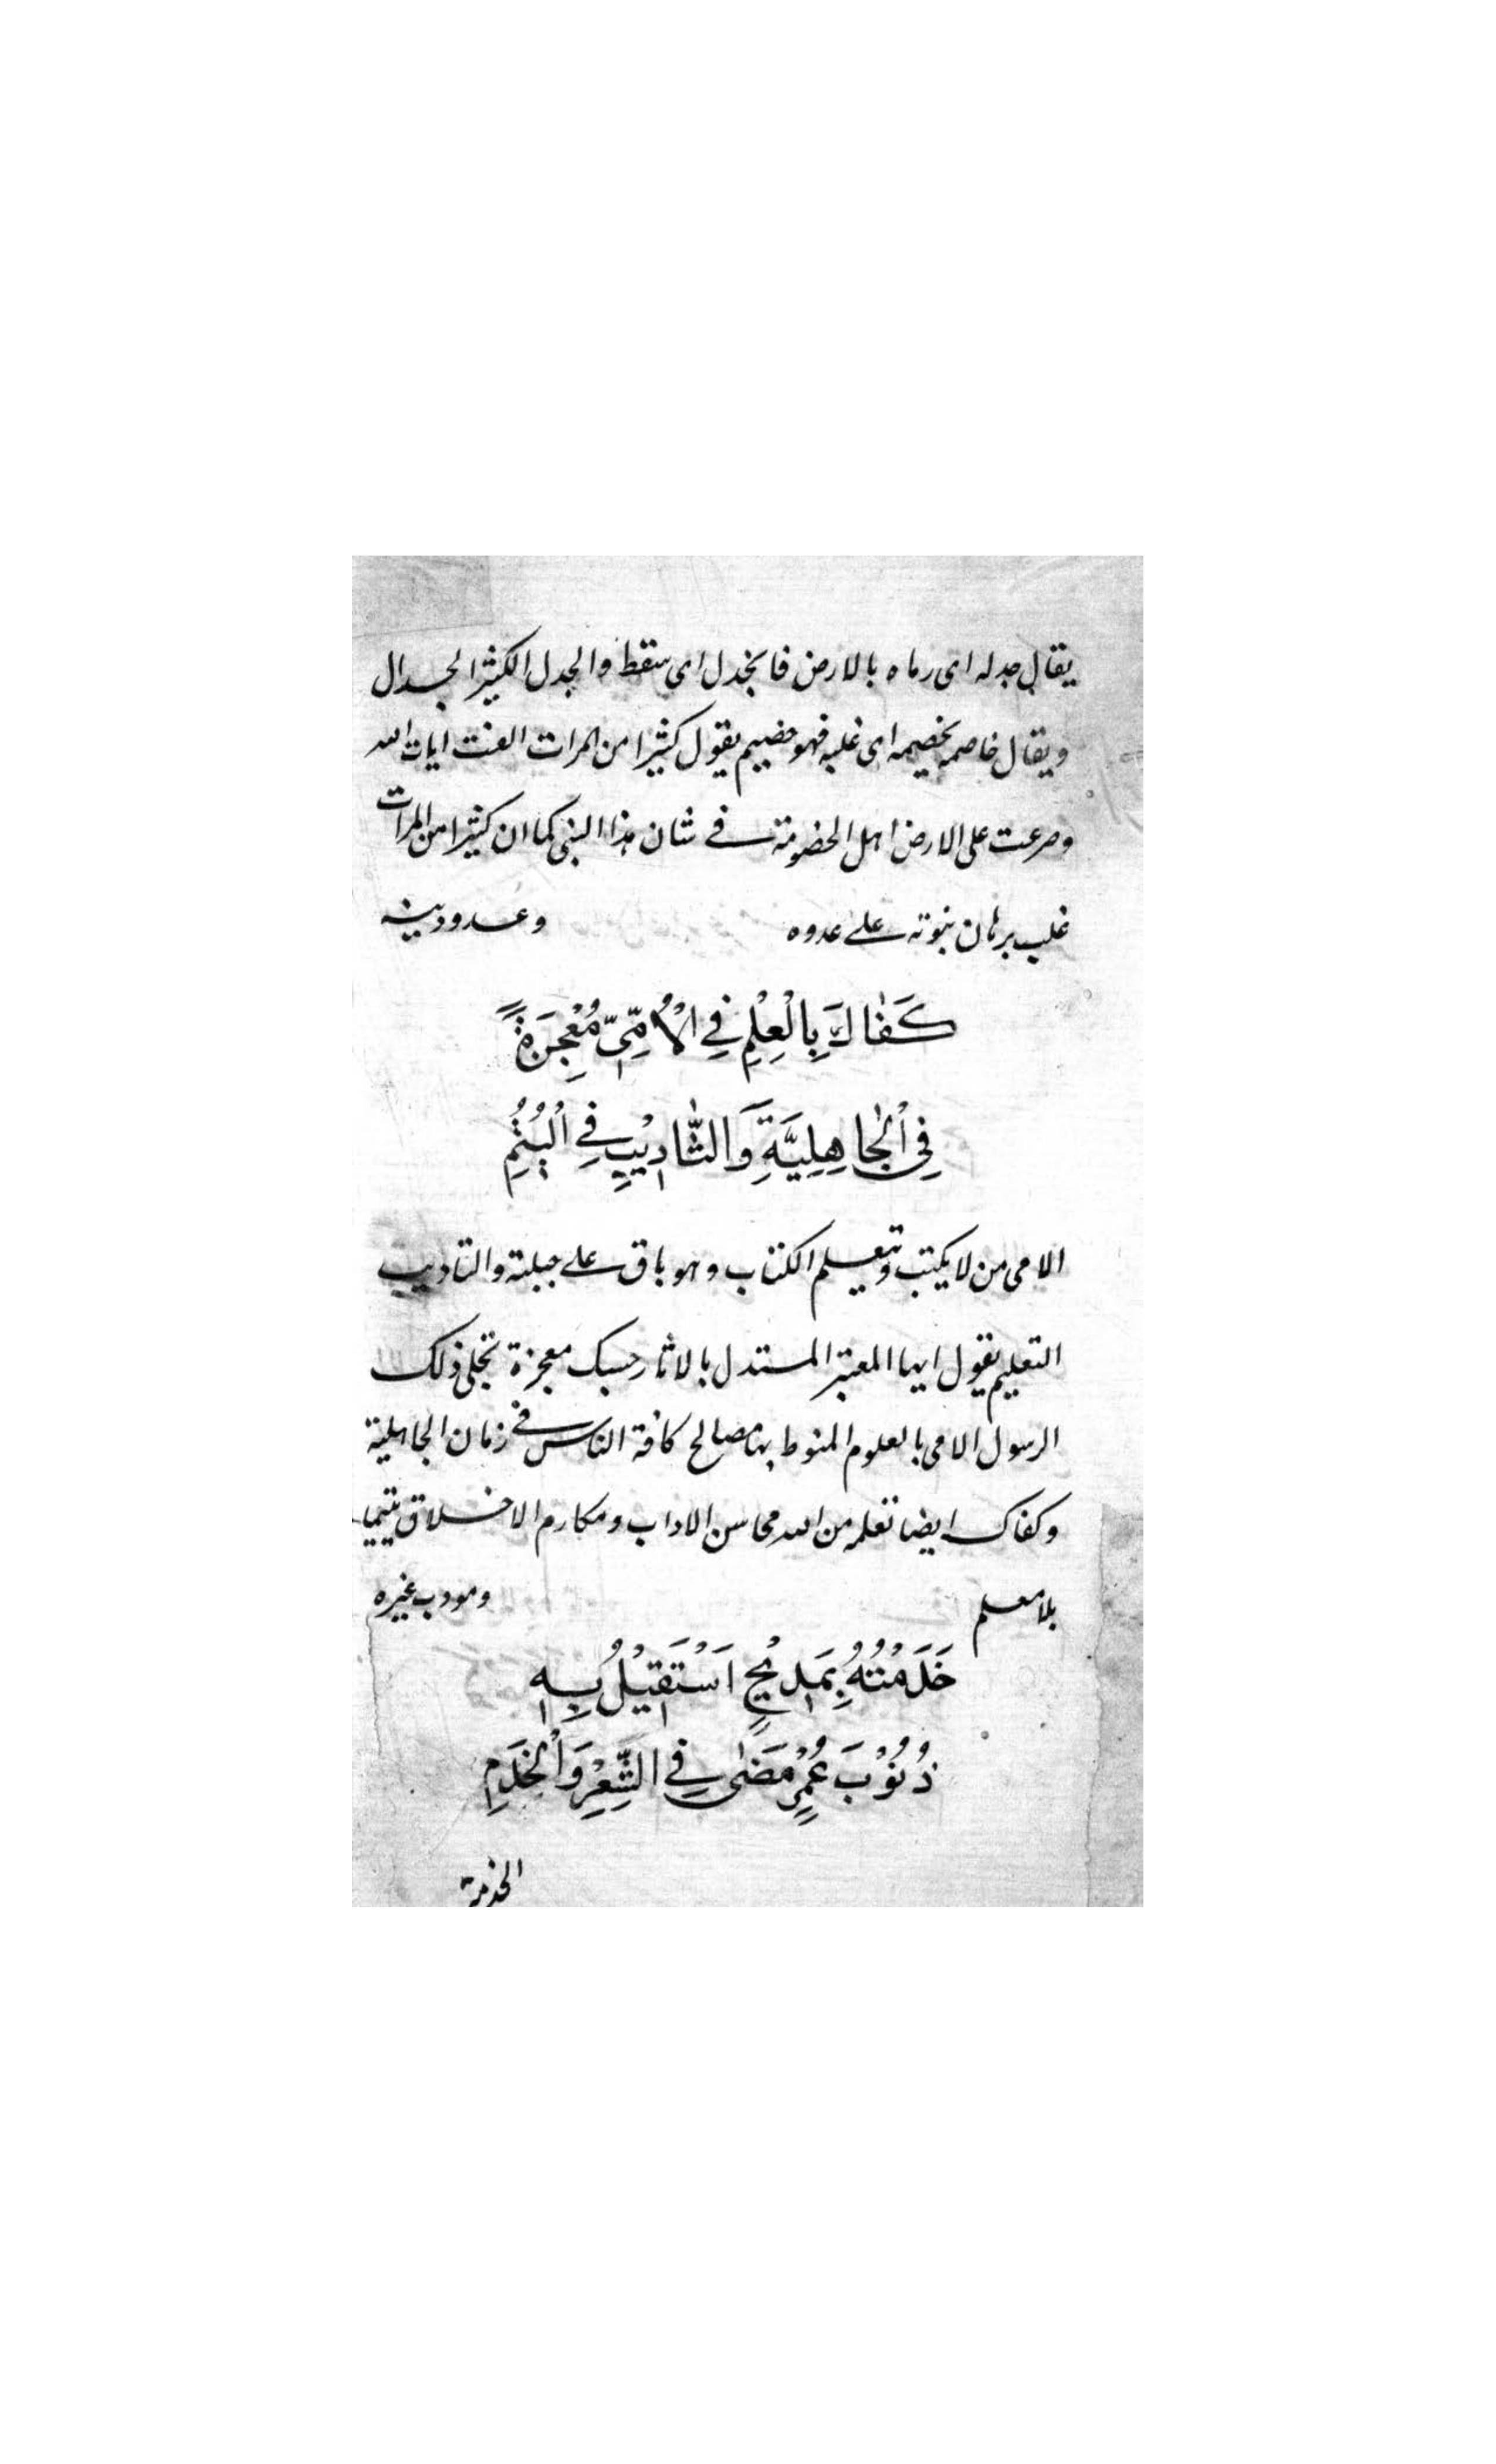 يقال جدله اى رماه بالارض فانجدل اى سقط والجدل الكثير الجدال
ويقال خاصمه يخصمه اى غلبه فهو خصيم يقول كثيرا من المرات الفت ايات الله
وصرعت على الارض اهل الخضومة فے شان هذا النبى كما ان كثيرا من المرات
غلب برهان نبوته علے عدوه وعدو دينه
كَفَاكَ بِالْعِلْمِ فِي الْأُمِّيِّ مُعْجِزَةً
فِي الْجَاهِلِيَّةِ وَالتَّادِيْبِ فِي الْيُتُمِ
الامى من لا يكتب وتيعلم الكتاب وهو باق علے جبلته والتاديب
التعليم يقول ايها المعتبر المستدل بالاثار حسبك معجزة تجلى ذلك
الرسول الامى بالعلوم المنوط بها مصالح كافة الناس فے زمان الجاهلية
وكفاك ايضا تعلمه من الله محاسن الاداب ومكارم الاخلاق يتيما
بلا معلم ومودب غيره
خَدَمْتُهُ بِمَدِيْحٍ اَسْتَقِيْلُ بِهٖ
ذُنُوْبَ عُمْرٍ مَضٰى فِي الشِّعْرِ وَالْخِدَمِ
الخدمة